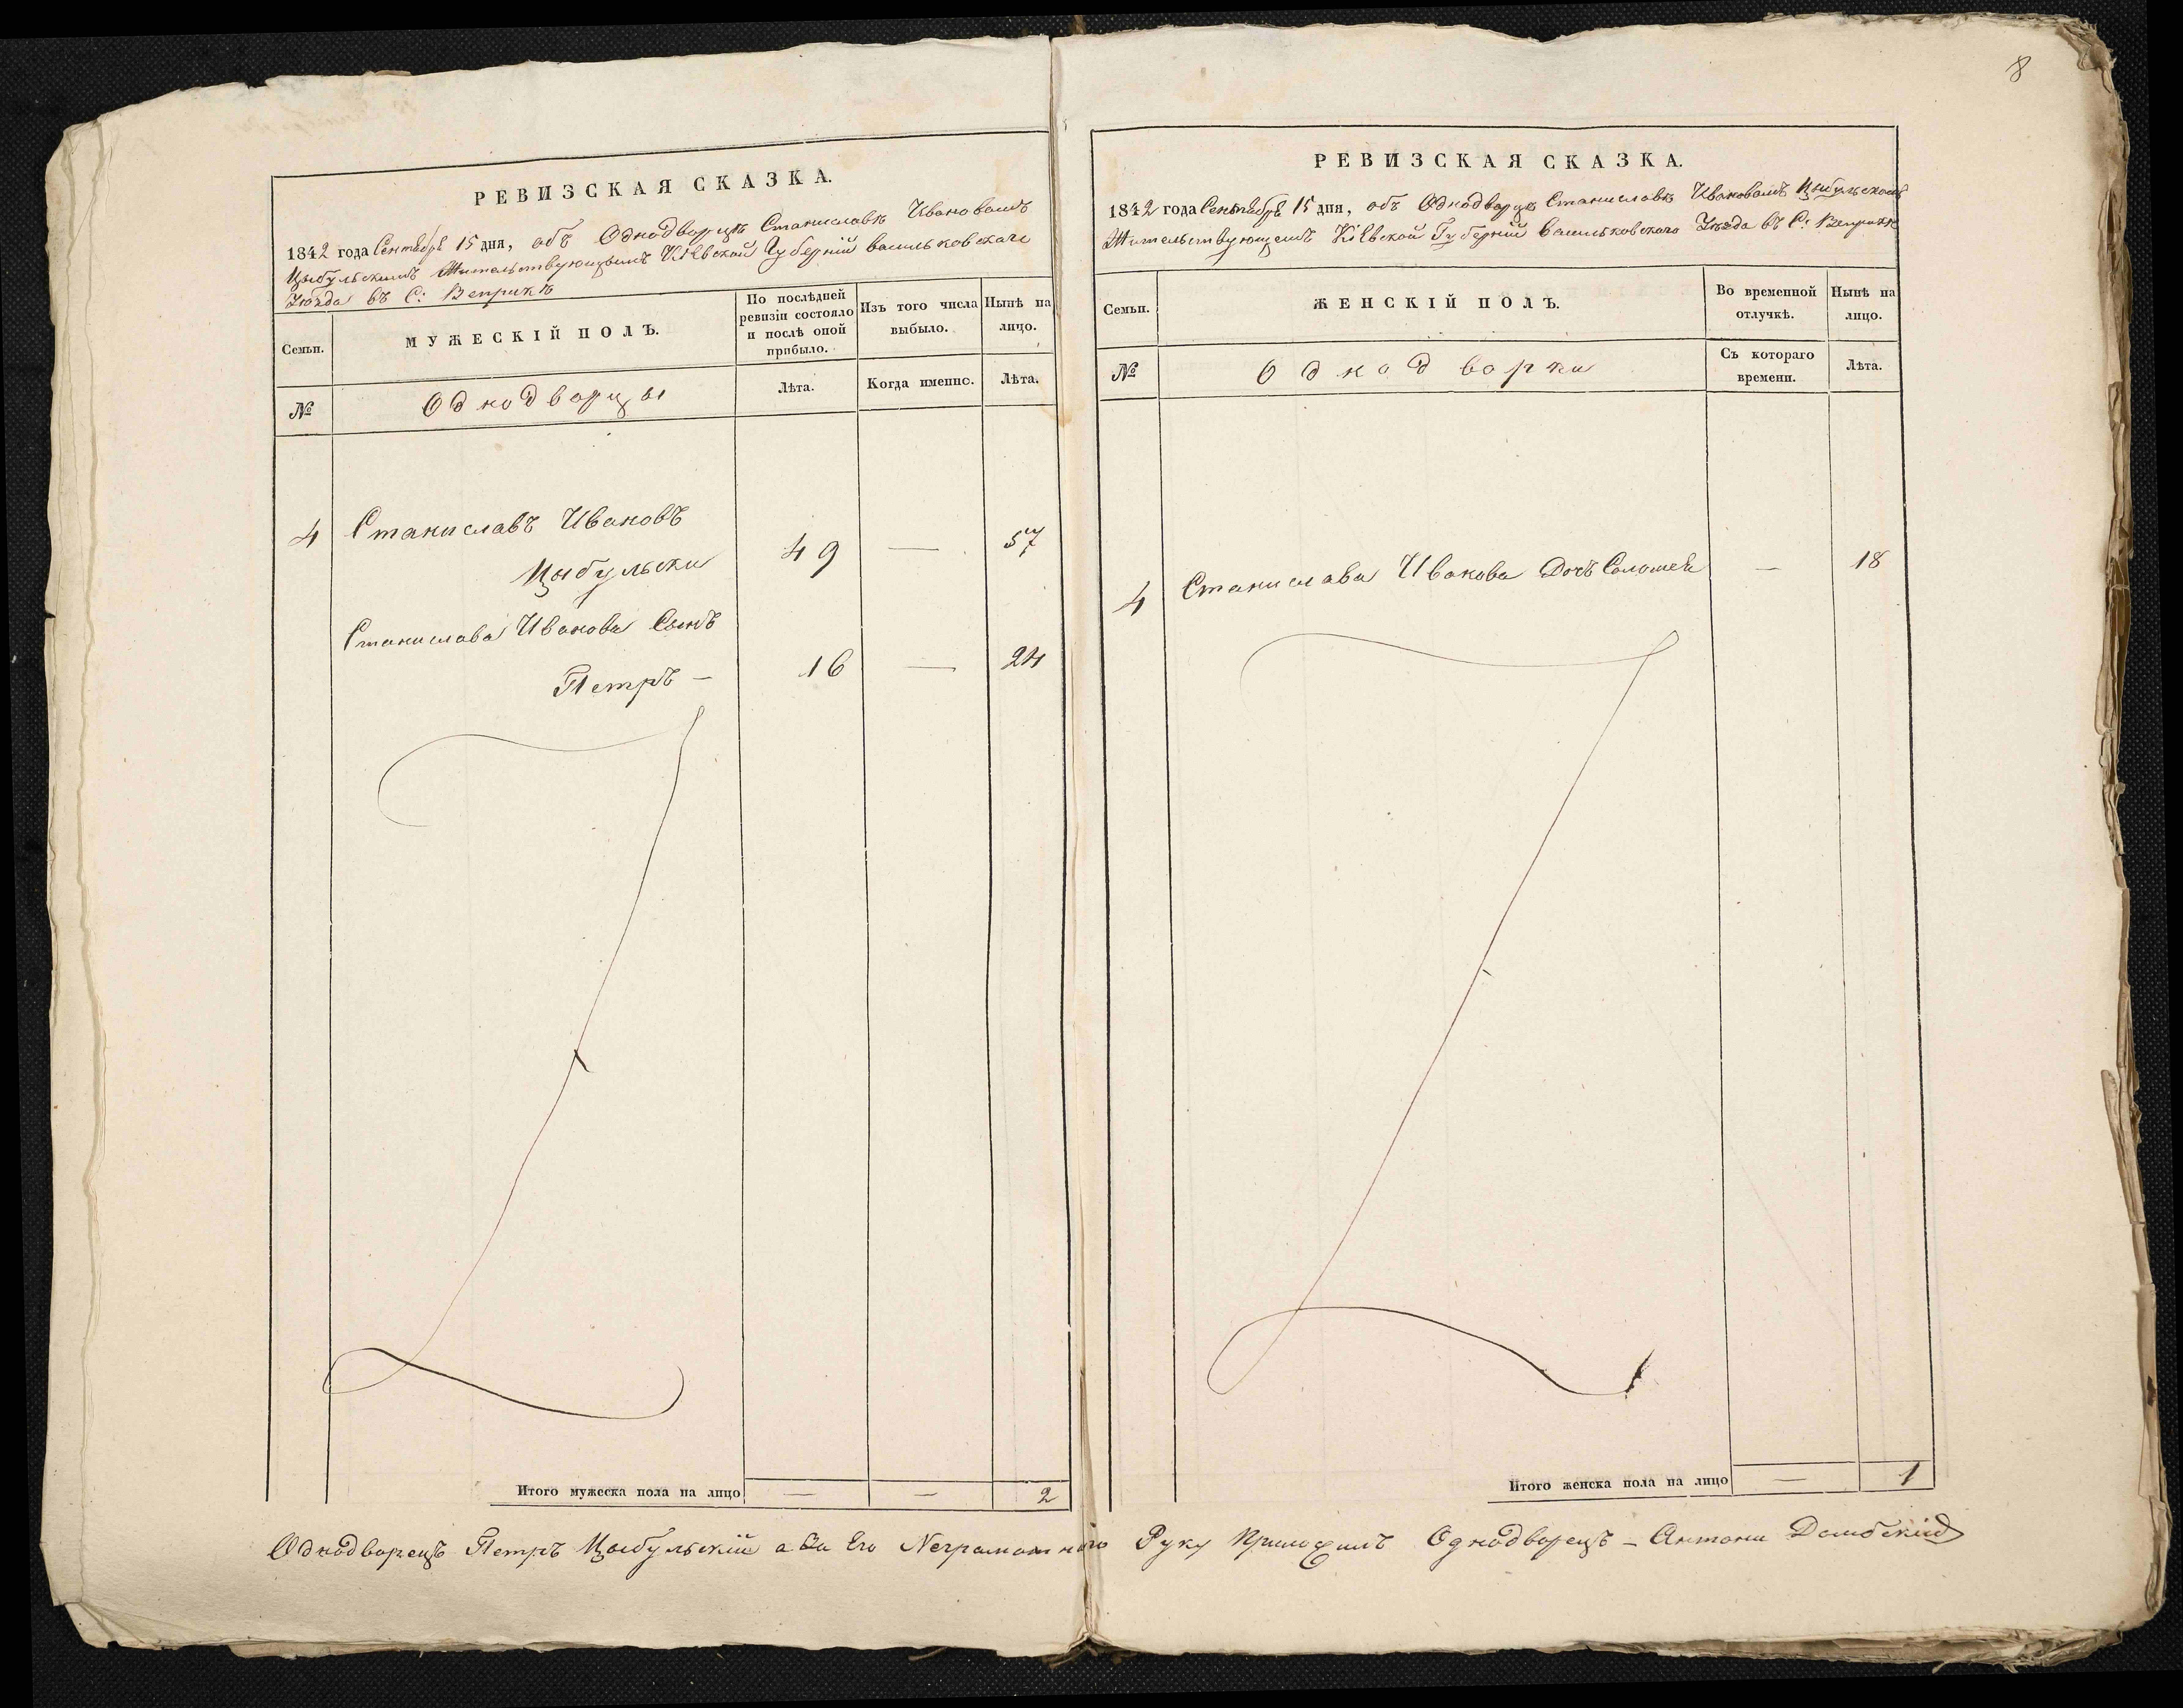 8
РЕВИЗСКАЯ СКАЗКА.
1842 года Сентября 15 дня, объ Однодворце Станиславѣ Ивановомъ
Цыбульскимъ Жительствующимъ Кіевской Губерніи васильковскаго
Уѣзда въ С: Веприкѣ
Семьи.
МУЖЕСКІЙ ПОЛЪ.
По послѣдней ревизіи состояло и послѣ оной прибыло.
Изъ того числа выбыло.
Нынѣ на лицо.
№
Однодворцы
Лѣта.
Когда именно.
Лѣта.
4 Станиславъ Ивановъ
Цыбульски 49 — 57
Станислава Иванова Сынъ
Петръ — 16 — 24
Итого мужеска пола на лицо — — 2
РЕВИЗСКАЯ СКАЗКА.
1842 года Сентября 15 дня, объ Однодворце Станиславѣ Ивановомъ Цыбульскомъ
Жительствующемъ Кіевской Губерніи Васильковскаго Уѣзда въ С: Веприкѣ
Семьи.
ЖЕНСКІЙ ПОЛЪ.
Во временной отлучкѣ.
Нынѣ на лицо.
№
Однодворки
Съ котораго времени.
Лѣта.
4 Станислава Иванова Дочь Соломея — 18
Итого женска пола на лицо — 1
Однодворецъ Петръ Цыбульскій а За Его Неграмотного Руку Приложилъ Однодворецъ — Антони Домбскій